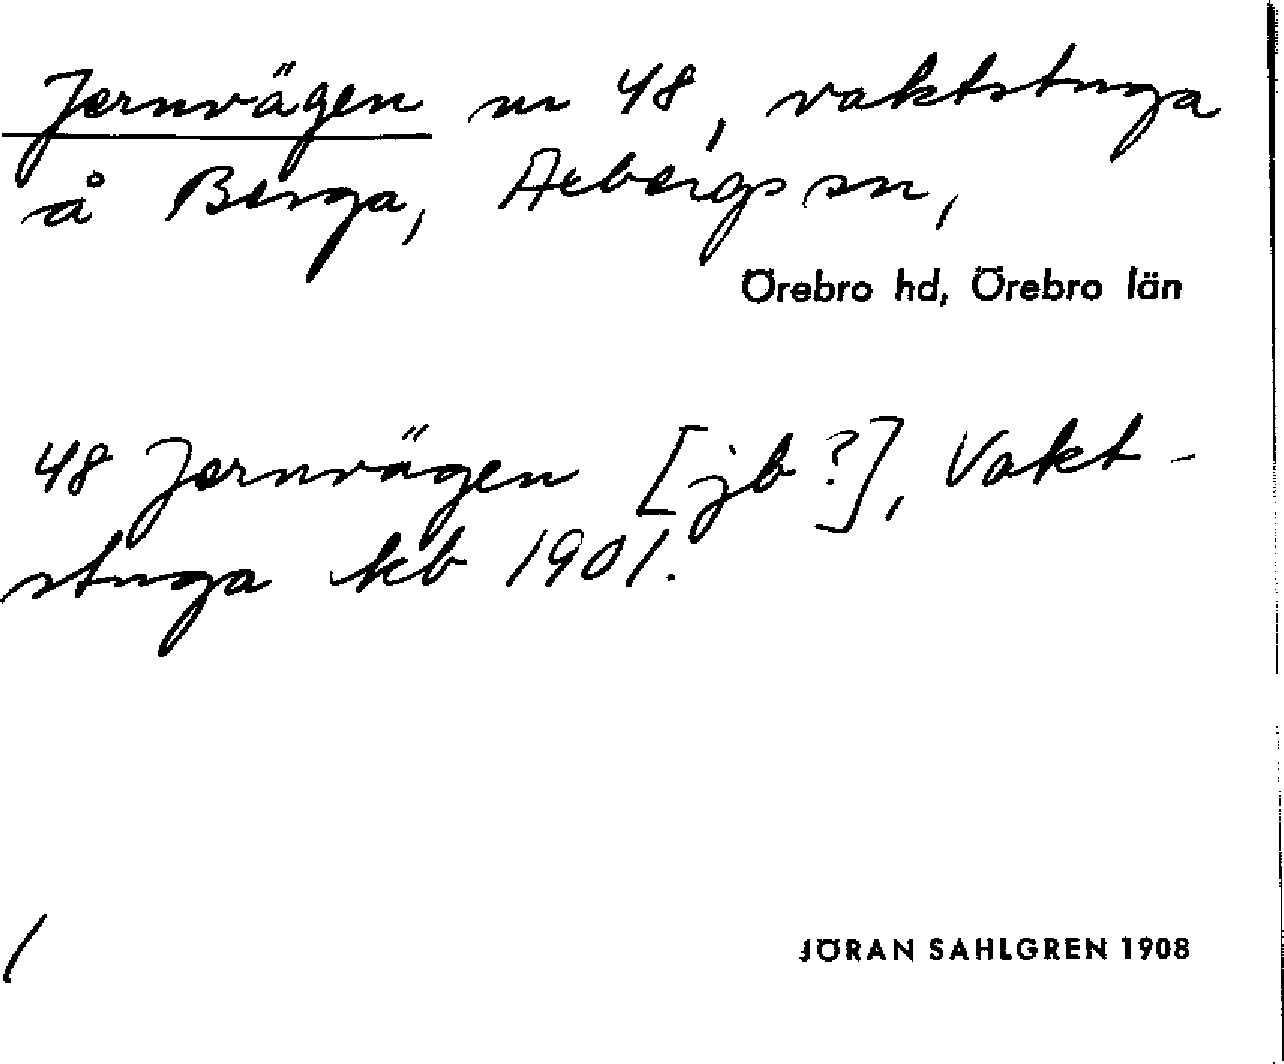 Jernvägen nr 48, vaktstuga
å Berga, Axbergs sn,
Örebro hd, Örebro län
48 Jernvägen [jb?], Vakt-
stuga kb 1901.
JÖRAN SAHLGREN 1908